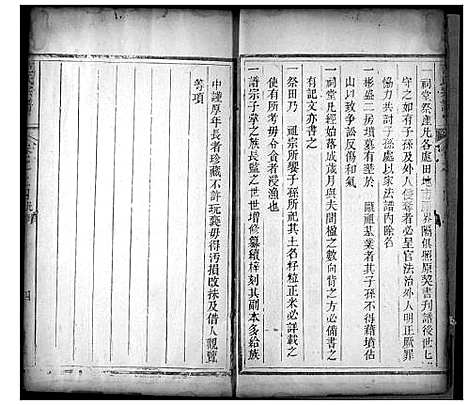 一祠堂祭產凡各處田地市房界限俱照原契書刋譜後世七
守之如有子孫及外人侵奪者必呈官法治外人明正厥罪
恊力共討子孫處以家法譜內除名
一彬盛二房墳墓有塟於 歐祖基業者其子孫不得藉墳佔
山以致爭訟反傷和氣
一祠堂凡經始落成歲月與夫間楹之數向背之方必備書之
有記文亦書之
一祭田乃 祖宗所嬰子孫所祀其土名籽粒正米必詳載之
使有所考毋令貪者浸漁也
一譜宗子掌之族長監之世世增修纂續梓刻其嗣本多給族
中謹厚年長者珍藏不許玩褻毋得汚損改抹及借人觀覽
等項